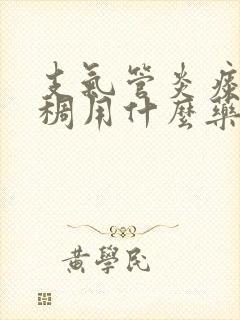 支氣管炎痰
稠用什麼藥
黃學民